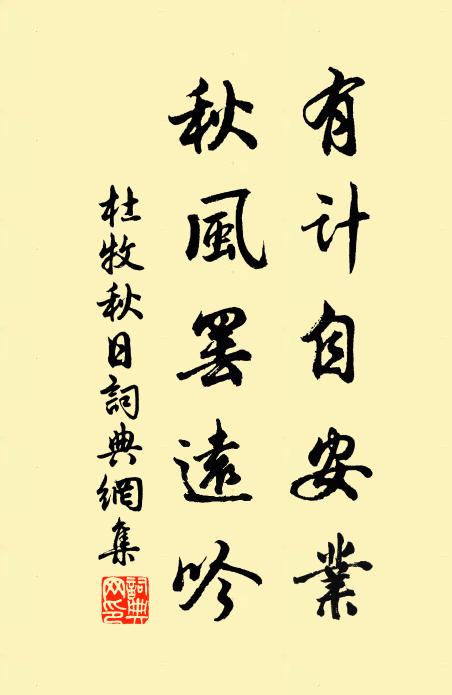 有计自安業
秋風罢遠吟
杜牧秋日詞典網集
詞典网印